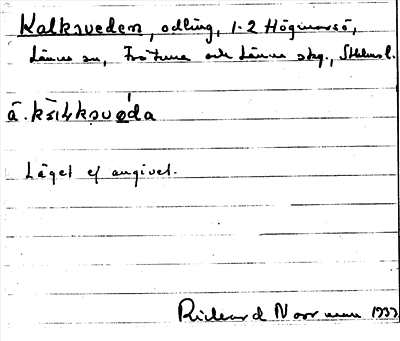 Kalksveden, odling, 1-2 Högmarsö,
Länna sn, Frötuna och Länna skg., Sthlms l.
Läget ej angivet.
Rickard Norrman 1933